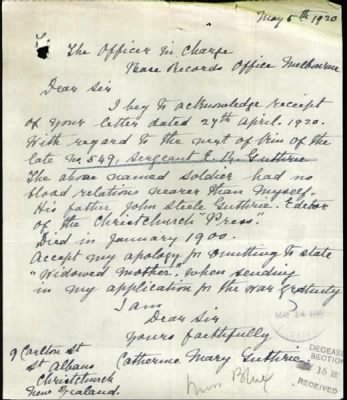 May 5th 1920
The Officer in Charge
Base Records Office Melbourne
Dear Sir
I beg to acknowledge receipt
of your letter dated 27th April. 1920.
With regard to the next of kin of the
late No. 549, Sergeant E. R. Guthrie
The above named soldier had no
blood relations nearer than myself.
His father John Steele Guthrie. Editor
of the Christchurch "Press".
Died in January 1900.
Accept my apology for omitting to state
"Widowed Mother", when sending
in my application for the war gratuity
I am
Dear Sir
yours faithfully
Catherine Mary Guthrie
9 Carlton St
St Albans
Christchurch
New Zealand.
MAY 14 1920
DECEASED
SECTION
RECEIVED